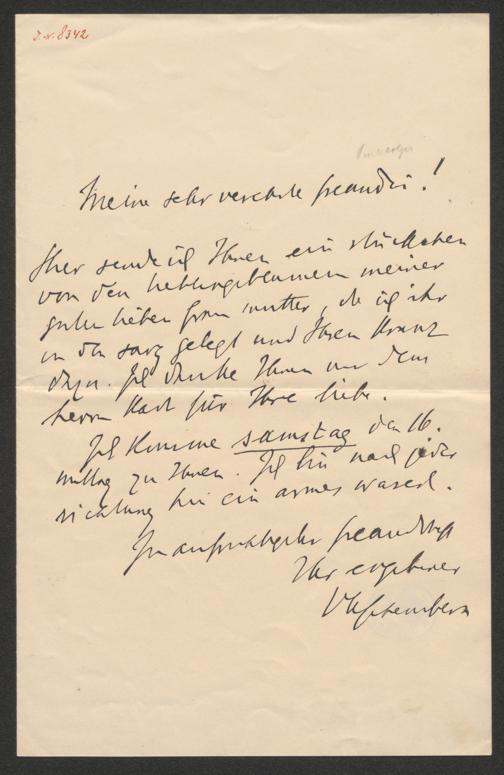 I.N. 8342
Meine sehr verehrte freundin!
Hier sende ich Ihnen ein stückchen
von den lieblingsblumen meiner
guten lieben frau mutter, die ich ihr
in den sarg gelegt und Ihren Kranz
dazu. Ich danke Ihnen und dem
herrn Karl für Ihre liebe.
Ich komme samstag den 16.
mittag zu Ihnen. Ich bin nach jeder
richtung hin ein armes waserl.
In aufrichtigster freundschaft
Ihr ergebener